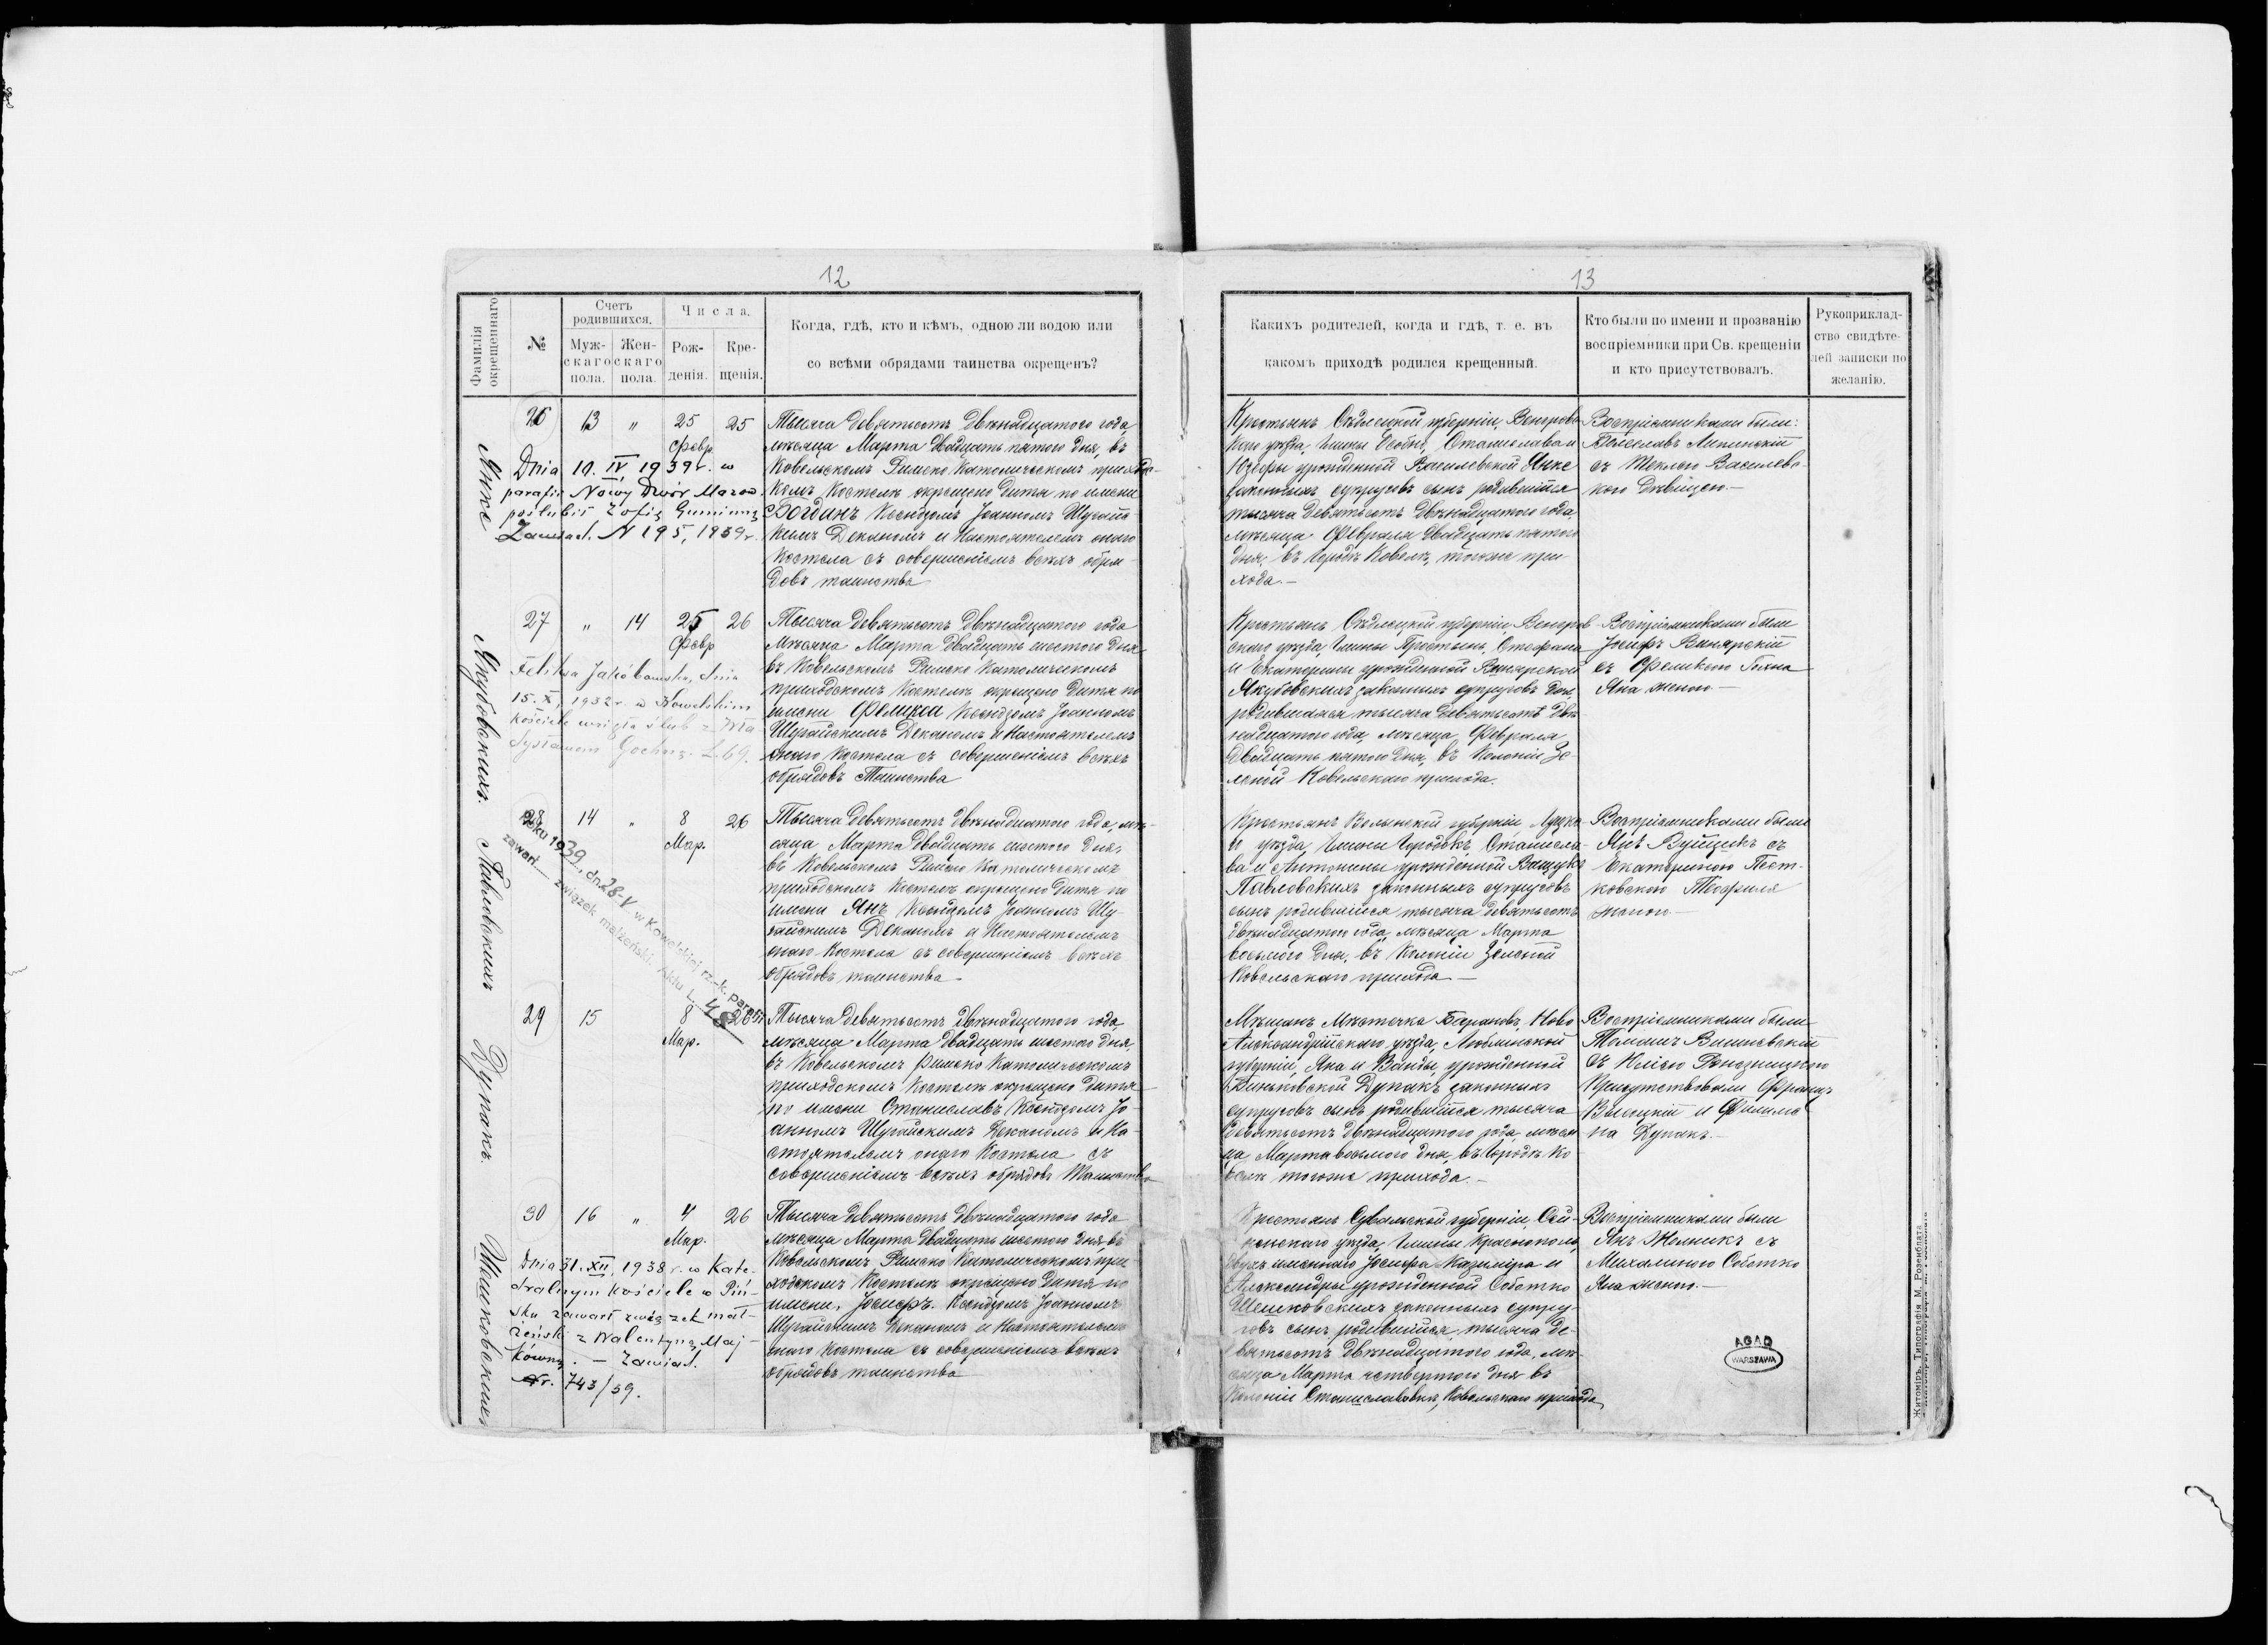 12
Фамилія окрещеннаго
№
Счетъ родившихся.
Муж-скаго пола.
Жен-скаго пола.
Числа.
Рож-денія.
Кре-щенія.
Когда, гдѣ, кто и кѣмъ, одною ли водою или
со всѣми обрядами таинства окрещенъ?
Янке
26 13 " 25 25
Февр.
Dnia 10. IV. 1939 r. w
parafii Nowy Dwór Mazow.
poślubił Zofię
Zawiad. N 195, 1939 r.
Тысяча девятьсотъ двѣнадцатого года,
мѣсяца Марта двадцать пятого дня, въ
Ковельскомъ Римско Католическомъ приходс-
комъ Костелѣ окрещено дитя по имени
Богданъ Ксендзомъ Іоанномъ Шугайс-
кимъ Деканомъ и Настоятелемъ онаго
Костела съ совершеніемъ всѣхъ обря-
довъ таинства
Якубовскихъ.
27 " 14 25 26
Февр
Feliksa Jakóbowska, dnia
15. X. 1932 r. w Kowelskim
kościele wzięła ślub z Wła
dysławem L. 69.
Тысяча девятьсотъ двѣнадцатого года
мѣсяца Марта двадцать шестого дня
въ Ковельскомъ Римско Католическомъ
приходскомъ Костелѣ окрещено дитя по
имени Фелиція Ксендзомъ Іоанномъ
Шугайскимъ Деканомъ и Настоятелемъ
онаго Костела съ совершеніемъ всѣхъ
обрядовъ Таинства
Павловскихъ
28 14 " 8 26
Мар.
roku 1939, dn. 28-V w Kowelskiej rz.-k. parafii
zawarł związek małżeński. Aktu L.
Тысяча девятьсотъ двѣнадцатого года, мѣ-
сяца Марта двадцать шестого дня,
въ Ковельскомъ Римско Католическомъ
приходскомъ Костелѣ окрещено дитя по
имени Янъ Ксендзомъ Іоанномъ Шу-
гайскимъ Деканомъ и Настоятелемъ
онаго Костела съ совершеніемъ всѣхъ
обрядовъ таинства
Дупакъ.
29 15 8 26
Мар.
Тысяча девятьсотъ двѣнадцатого года
мѣсяца Марта двадцать шестого дня,
въ Ковельскомъ Римско Католическомъ
приходскомъ Костелѣ окрещено дитя
по имени Станиславъ Ксендзомъ Іо-
анномъ Шугайскимъ Деканомъ и На-
стоятелемъ онаго Костела съ
совершеніемъ всѣхъ обрядовъ Таинства
Шешковскихъ
30 16 " 4 26
Мар.
Dnia 31. XII. 1938 r. w Kate-
dralnym kościele w Piń-
sku zawarł związek mał-
żeński z Walentyną Maj-
kówną. - Zawiad.
Nr. 743/39.
Тысяча девятьсотъ двѣнадцатого года
мѣсяца Марта двадцать шестого дня, въ
Ковельскомъ Римско Католическомъ при-
ходскомъ Костелѣ окрещено дитя по
имени, Іосифъ. Ксендзомъ Іоанномъ
Шугайскимъ Деканомъ и Настоятелемъ
онаго Костела съ совершеніемъ всѣхъ
обрядовъ таинства
13
Какихъ родителей, когда и гдѣ, т. е. въ
какомъ приходѣ родился крещенный.
Кто были по имени и прозванію
воспріемники при Св. крещеніи
и кто присутствовалъ.
Рукоприклад-
ство свидѣте-
лей записки по
желанію.
Крестьянъ Сѣдлецкой губерніи, Венгровс
кого уѣзда, Гмины Станислава и
Юзефы урожденной Василевской Янке
законныхъ супруговъ сынъ родившійся
тысяча девятьсотъ двѣнадцатого года,
мѣсяца Февраля двадцать пятого
дня, въ городѣ Ковелѣ, тогоже при-
хода.-
Воспріемниками были:
Болеславъ Липинскій
съ Теклею Василевс-
кою дѣвицею.-
Крестьянъ Сѣдлецкой губерніи Венгров-
скаго уѣзда, Гмины Стефана
и Екатерины урожденной Винярской
Якубовскихъ законныхъ супруговъ дочь,
родившаяся тысяча девятьсотъ двѣ-
надцатого года, мѣсяца Февраля
двадцать пятого дня, въ Колоніи Зе-
леной Ковельскаго прихода.
Воспріемниками были
Іосифъ Винярскій
съ
Яна женою.-
Крестьянъ Волынской губерніи Луцка-
го уѣзда, Гмины Городокъ Станисла-
ва и Антонины урожденной Ващукъ
Павловскихъ законныхъ супруговъ
сынъ родившійся тысяча девятьсотъ
двѣнадцатого года, мѣсяца Марта
восьмого дня, въ Колоніи Зеленой
Ковельскаго прихода -
Воспріемниками были
Янъ Вуйцикъ съ
Екатериною Пест-
ковскою Теофиля
женою -
Мѣщанъ Мѣстечка Барановъ, Ново
Александрійскаго уѣзда, Люблинской
губерніи, Яна и Ванды, урожденной
Дупакъ законныхъ
супруговъ сынъ родившійся тысяча
девятьсотъ двѣнадцатого года, мѣся
ца Марта восьмого дня, въ городѣ Ко
велѣ тогоже прихода.-
Воспріемниками были
Томашъ Вишневскій
съ
Присутствовали Францъ
Высоцкій и Филиме
на Дупакъ.-
Крестьянъ Сувалкской губерніи, Сей-
ненскаго уѣзда, Гмины Краснополь,
двухъ именнаго Іосифа Казиміра и
Александры урожденной Соботко
Шешковскихъ законныхъ супру-
говъ сынъ родившійся, тысяча де-
вятьсотъ двѣнадцатого года, мѣ-
сяца Марта четвертого дня въ
Колоніи Станиславовкѣ, Ковельскаго прихода
Воспріемниками были
Янъ съ
Михалиною Соботко
Яна женою.-
AGAD
WARSZAWA
Житоміръ. Типографія М. Розенблата